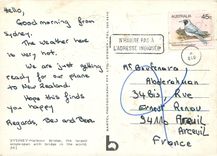 Hello,
Good morning from
Sydney.
The weather here
is very hot.
We are just getting
ready for our plane
to New Zealand.
Hope this finds
you happy
Regards, Des and Bess
SYDNEY Harbour Bridge, the largest
single-span arch bridge in the world.
AUSTRALIA
45c
N'HABITE PAS A
L'ADRESSE INDIQUÉE
Mr Boufenara
Abderrahman
34 Bis, Rue
Ernest Renou
94110 Arcueil
Arcueil
France